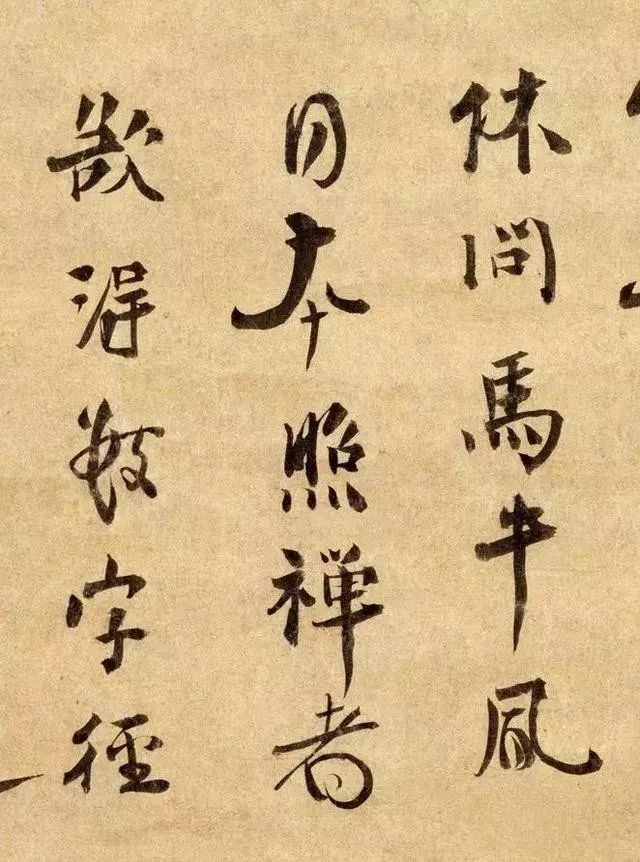 休問馬牛風
日本照禪者
欲得數字徑